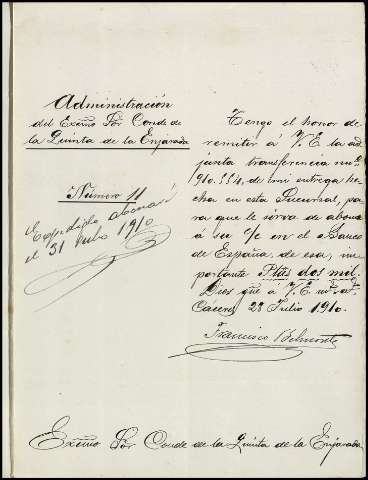 Administración
del Excmo Sor Conde de
la Quinta de la Enjarada
Número 11
el 31 Julio 1910
Tengo el honor de
remitir á V.E. la ad
junta transferencia no
910.554, de mi entrega he
cha en esta Sucursal, pa
ra que le sirva de abono
á su c/c en el Banco
de España, de esa, im
portante Ptas dos mil.
Dios gue á V.E. ms as
Cáceres 28 Julio 1910.
Francisco Belmonte
Excmo Sor Conde de la Quinta de la Enjarada